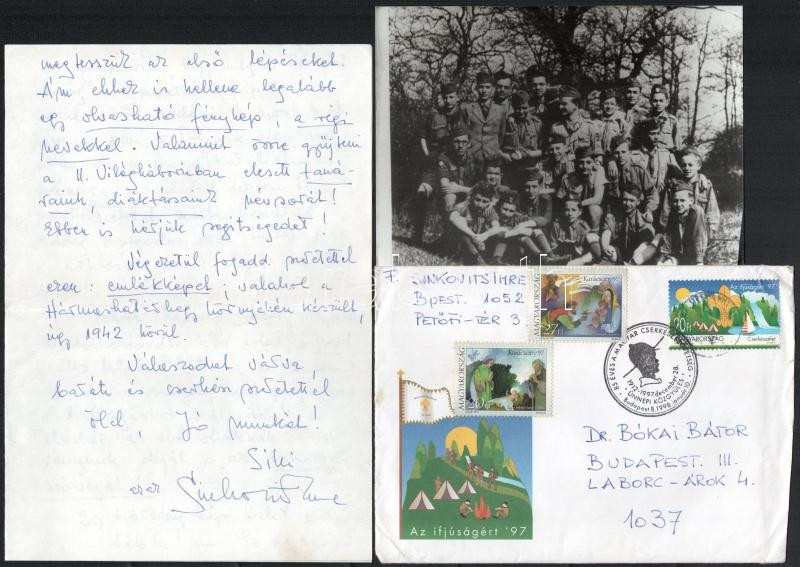 megtesszük az első lépéseket.
Ám ehhez is kellene legalább
egy olvasható fénykép, a régi
nevekkel. Valamint össze gyűjteni
a II. Világháborúban elesett taná-
raink, diáktársaink névsorát!
Ebben is kérjük segítségedet!
Végezetül fogadd szeretettel
ezen: emlékképet; valahol a
Hármashatárhegy környékén készült,
úgy 1942 körül.
Válaszodat várva,
baráti és cserkész szeretettel
ölel, Jó munkát!
Siki
azaz Sinkovits Imre
F. SINKOVITS IMRE
Bpest. 1052
PETŐFI-TÉR 3
Karácsony '97
27 Ft
MAGYARORSZÁG
Karácsony '97
20 Ft
MAGYARORSZÁG
Az ifjúságért '97
20 Ft
MAGYARORSZÁG
Cserkészélet
85 ÉVES A MAGYAR CSERKÉSZSZÖVETSÉG
1912-1997 december 28.
ÜNNEPI KÖZGYŰLÉS
Budapest 8, 1998. január 10.
Az ifjúságért '97
Dr. BÓKAI BÁTOR
BUDAPEST. III.
LABORC-ÁROK 4.
1037